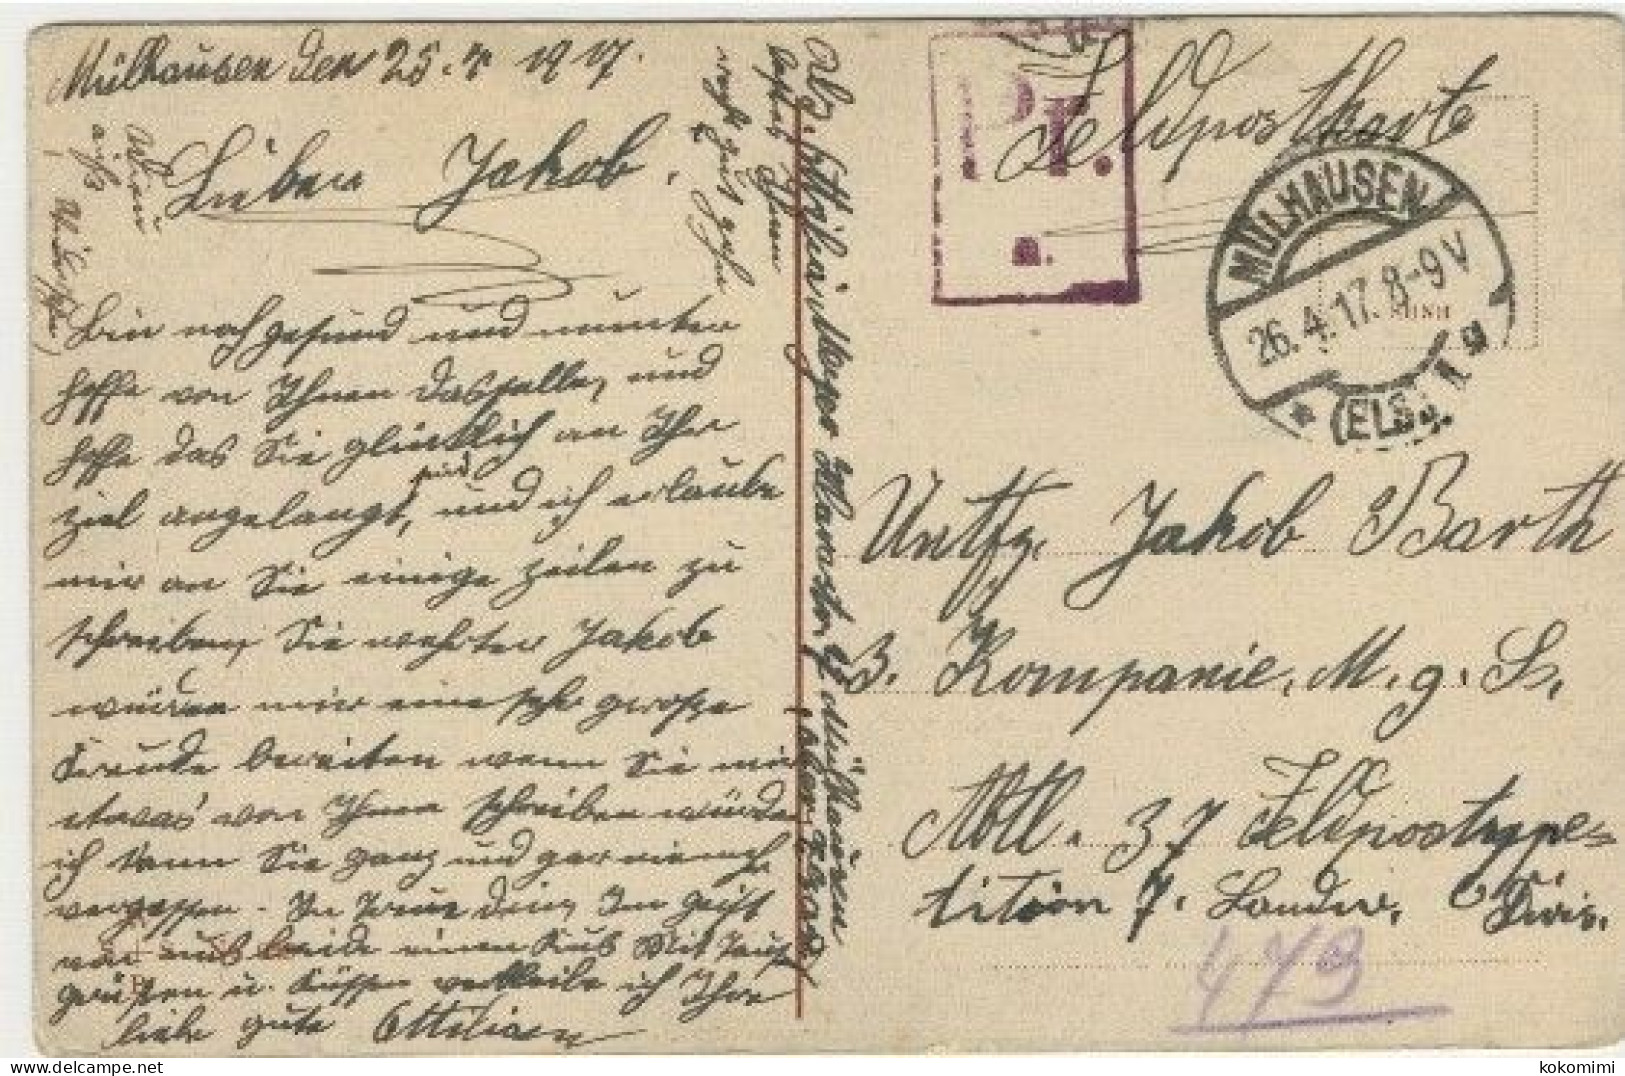 Mülhausen den 25. 4. 1917.
Lieber Jakob.
Bin noch gesund und munter
hoffe von Ihnen dasselbe, und
hoffe das Sie glücklich an Ihr
Ziel angelangt sind, und ich erlaube
mir an Sie einige Zeilen zu
schreiben, Sie werter Jakob
würden mir eine sehr grosse
Freude bereiten wenn Sie mir
etwas von Ihnen schreiben würden
ich kann Sie ganz und gar nicht
vergessen. In Treue dein, Im Geist
einen Kuß Mit
grüßen u. Küssen verbleibe ich Ihre
liebe gute Ottilie
Abs. Ottilia Meyer Mülhausen
Feldpostkarte
Pr.
a.
MÜLHAUSEN
26.4.17.8-9V
(ELS.)
Untfz. Jakob Barth
3. Kompanie, M. g. S.
Abtl. 37 Feldpostexpe-
tition 7. Landw. Divis.
473
kokomimi